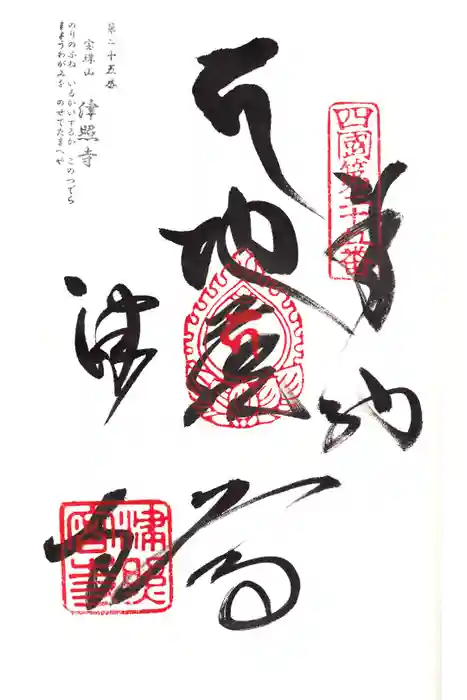 四國第二十五番
奉納
地蔵
津寺
第二十五番
宝珠山 津照寺
のりのふね いるかいづるか このつでら
まようわがみを のせてたまへや